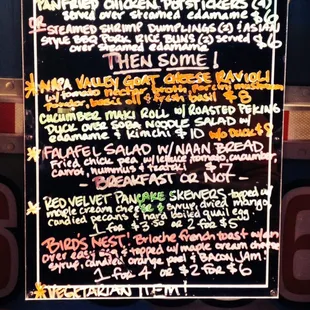 PANFRIED CHICKEN POTSTICKERS (4)
served over steamed edamame $6
OR
STEAMED SHRIMP DUMPLINGS (2) & ASIAN
STYLE BBQ PORK RICE BUNS (2) served
over steamed edamame $6
THEN SOME!
NAPA VALLEY GOAT CHEESE RAVIOLI
w/ tomato nectar broth, porcini mushroom
powder, basil oil & fresh basil $8
CUCUMBER MAKI ROLL w/ ROASTED PEKING
DUCK over SOBA NOODLE SALAD w/
edamame & Kimchi $10 w/o DUCK $8
FALAFEL SALAD w/ NAAN BREAD
Fried chick pea w/ lettuce, tomato, cucumber,
carrot, hummus & tzatziki
- BREAKFAST OR NOT -
RED VELVET PANCAKE SKEWERS - topped w/
maple cream cheese & syrup, dried mango,
candied pecans & hard boiled quail egg
1 for $3.50 or 2 for $5
BIRDS NEST! Brioche french toast w/ an
over easy egg & topped w/ maple cream cheese
syrup, candied orange peel & BACON JAM!
1 for 4 or 2 for $6
VEGETARIAN ITEM!